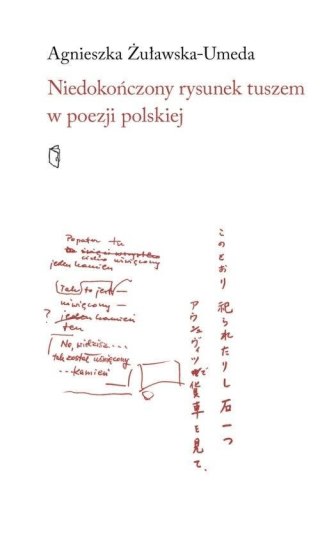 Agnieszka Żuławska-Umeda
Niedokończony rysunek tuszem
w poezji polskiej
Popatrz tu
cicho uświęcony
jeden kamień
Tak to jest
uświęcony —
? jeden kamień
ten
No, widzisz...
tak został uświęcony
...kamień
このとおり 祀られたりし 石一つ
アウシュヴィッツで貨車を見て。